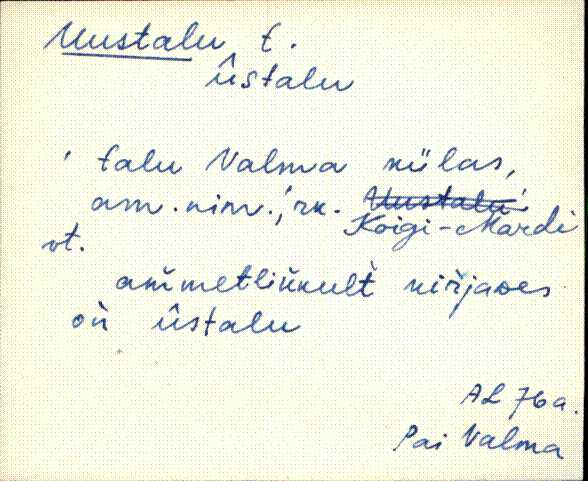 Uustalu t.
ûstalu
' talu Valma külas,
am. nim.; rk. Uustalu
Koigi-Mardi
vt.
ańmetlikult kiŕjaѕes
oń ûstalu
AL 76a.
Pai Valma